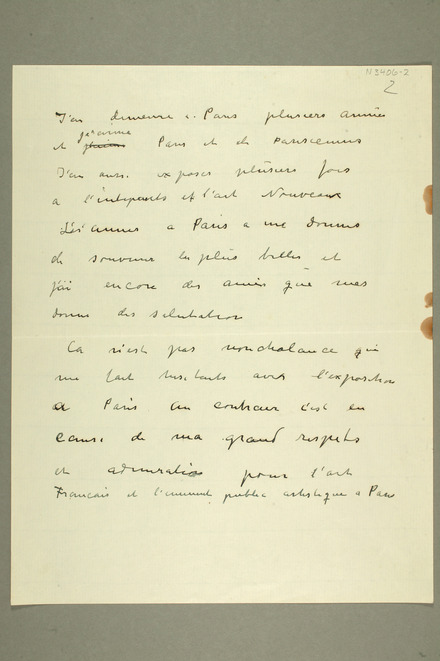 N3406-2
2
J'ai demeure a Paris plusiers années
et j'aime Paris et de parisciennes
J'ai aussi exposer plusiers fois
a l'indepants et l'art Nouveaux
annees a Paris a me donnes
de souvenir les plus belles et
j'ai encore des amies que mes
donne des salutation
Ca n'est pas nonchalance qui
me fait hesitants avec l'exposition
a Paris au contraire c'est en
cause de ma grand respets
et admiration pour l'art
Français et l'eminent public artistique a Paris